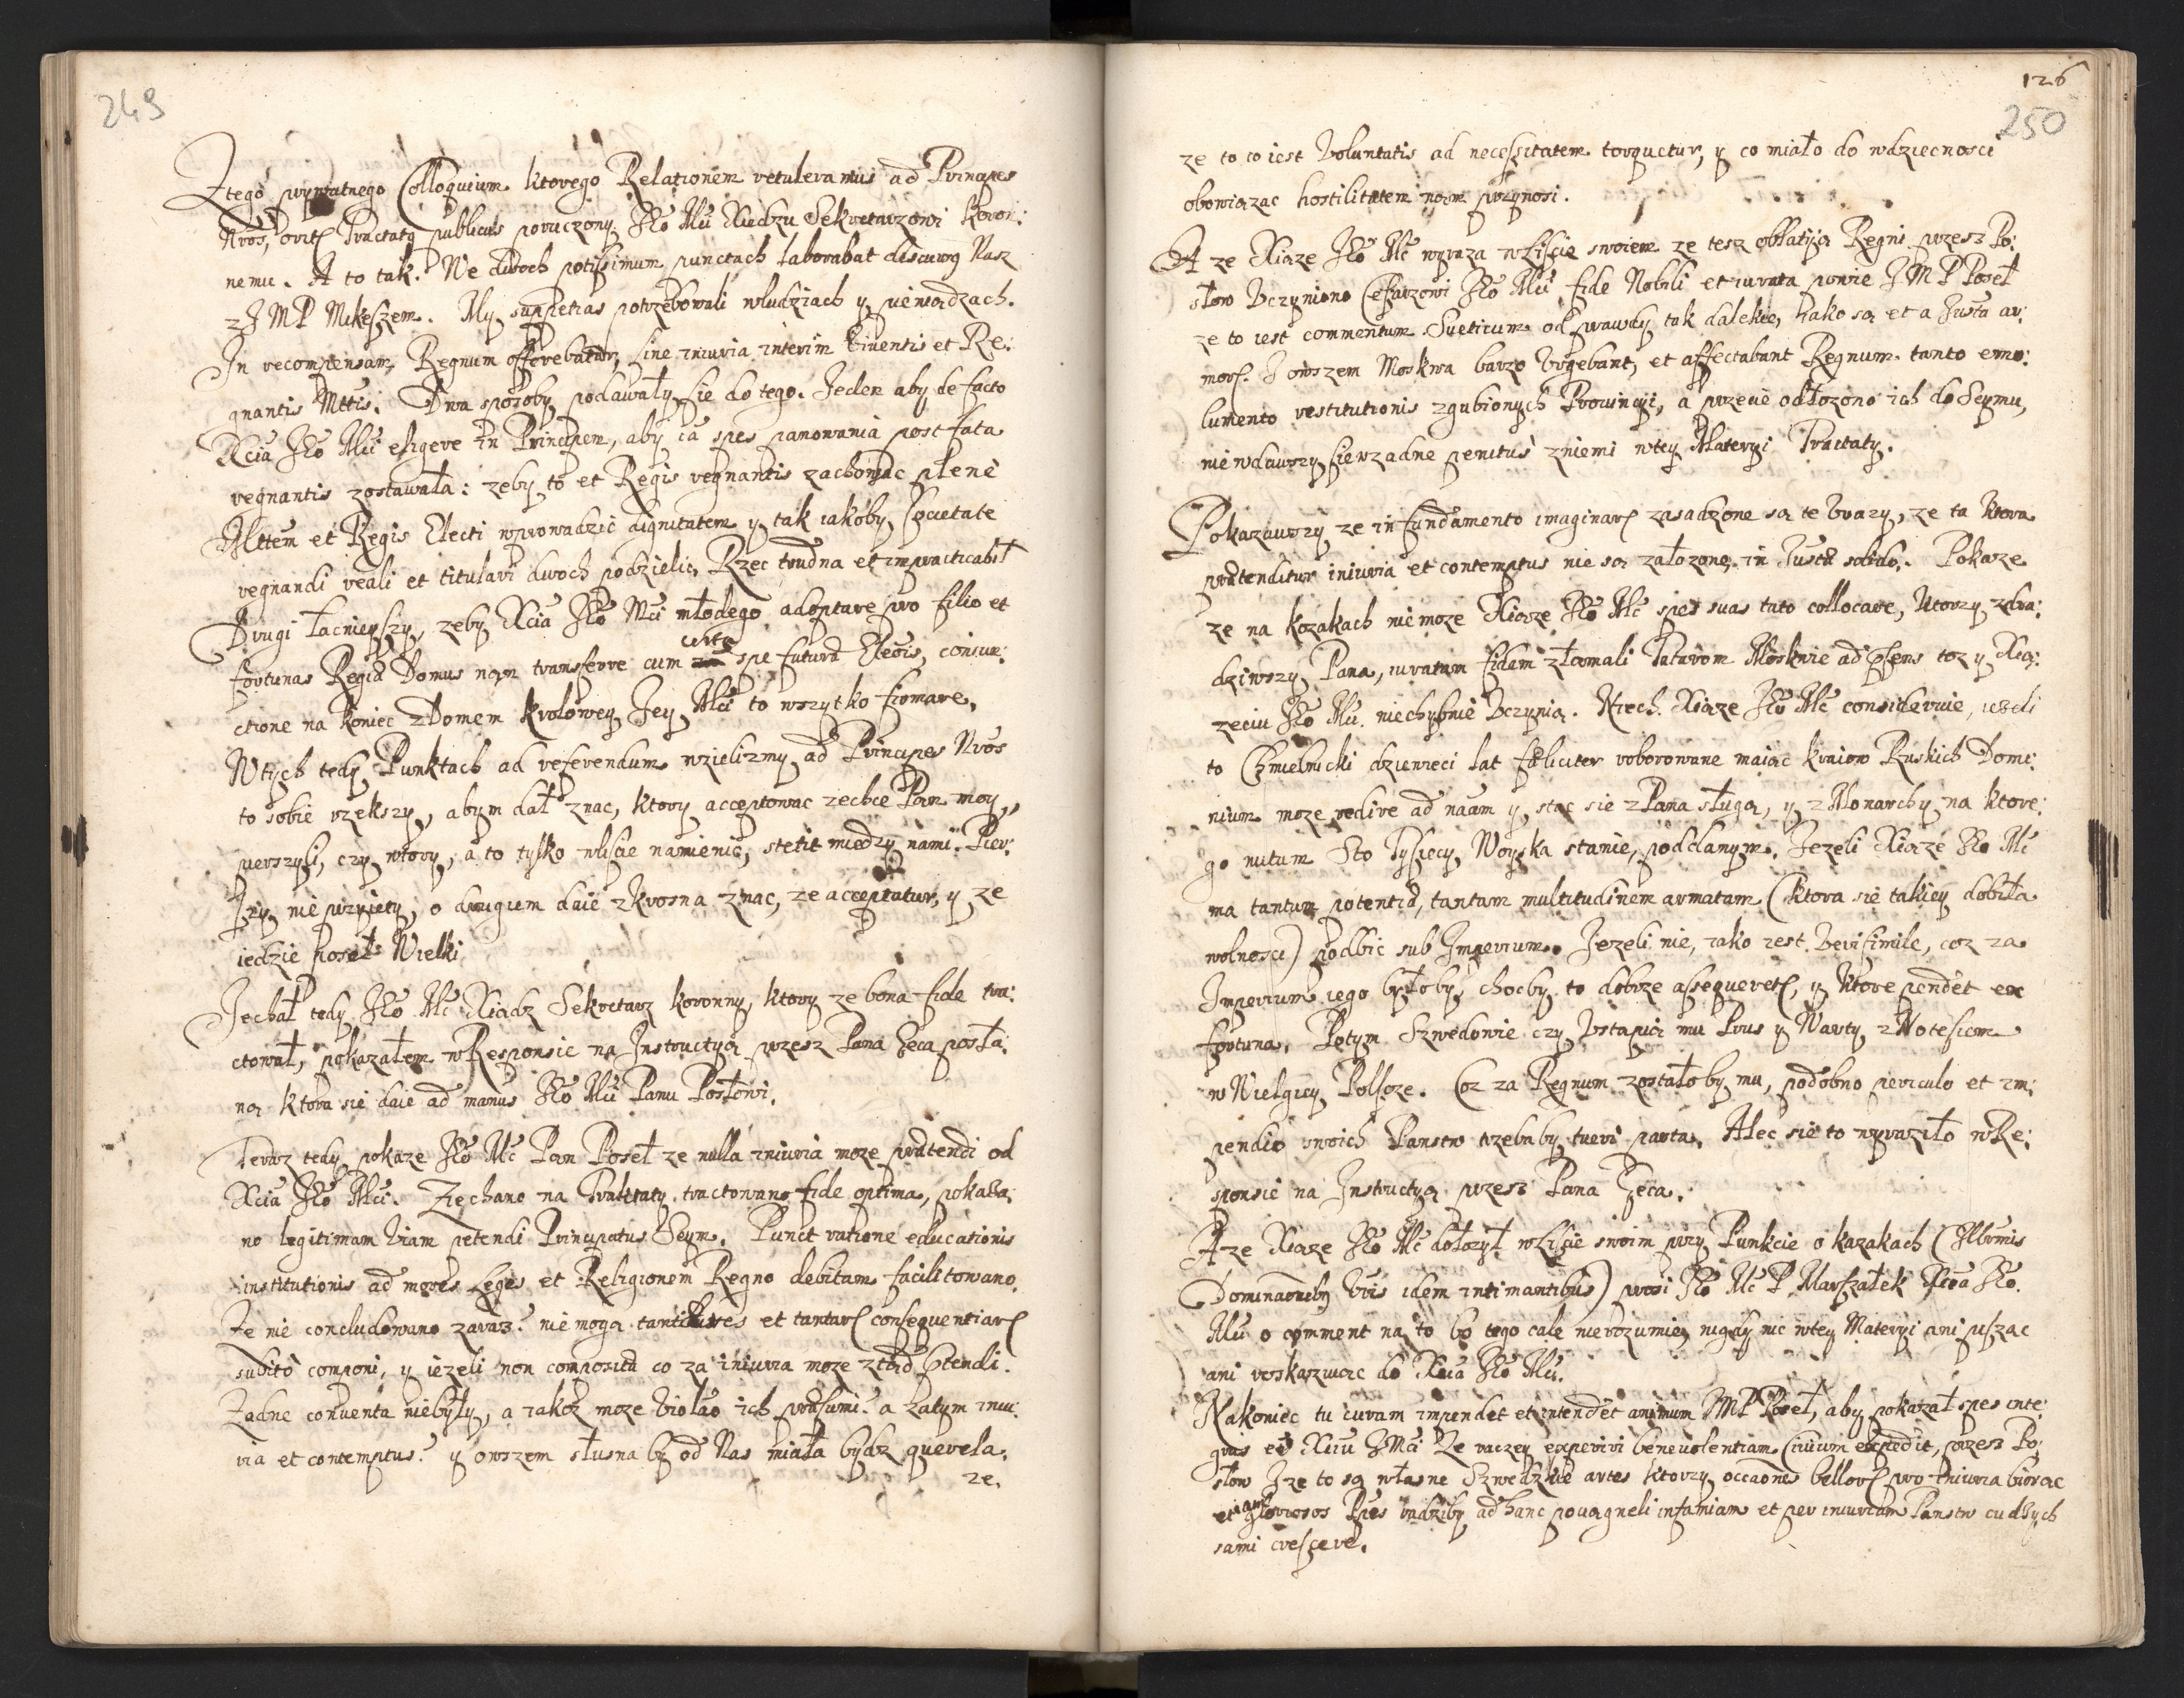 249
Ztego prywatnego Colloquium ktorego Relationem retuleramus ad Principes
Nros, orit Tractatq publicus poruczony Jko Mu Xiedzu Sekretarzowi Koron:
nemu. A to tak. We dwoch potissimum punctach laborabat discursq Nasz
z J M P Mikeszem. My suppetias potrzebowali wludziach y pieniądzach.
In recompensam Regnum offerebatur, sine iniuria interim viventis et Re:
gnantis Mttis. Dwa sposoby podawały sie do tego. Jeden aby de facto
Xcia Jko Mci eligere in Principem, aby ia spes panowania post fata
regnantis zostawała: zeby to et Regis regnantis zachowac plenè
Mttem et Regis Electi wprowadzic dignitatem y tak iakoby Societate
regnandi reali et titulari dwoch podzielic, Rzec trudna et impracticabil
Drugi łacnieyszy, zeby Xcia Jko Mci młodego adoptare pro filio et
fortunas Regiæ Domus nam transferre cum certa spe futuræ Eleõis, coniun:
ctione na koniec z Domem krolowey Jey Mci to wszytko firmare.
W tych tedy Punktach ad referendum wzielizmy ad Principes Nros
to sobie rzekszy, abym dał znac, ktory acceptowac zechce Pan moy,
pierszyli, czy wtory, a to tylko wliscie namienic, stetit między nami. Pier:
szy nie przyięty, o drugiem daie z krosna znac, ze acceptatur, y ze
iedzie poseł Wielki
Jechał tedy Jko Mc Xiądz Sekretarz koronny, ktory ze bona fide tra:
ctował, pokazałem w Responsie na Instructyą przesz Pana Zeca posła:
ną ktora się daie ad manus Jko Mci Panu Posłowi.
Teraz tedy pokaze Jko Mc Pan Poseł ze nulla iniuria moze prætendi od
Xcia Jko Mci. Ziechano na Traktaty tractowano fide optima, pokaza:
no legitimam viam petendi Principatus Seym. Punct ratione educationis
institutionis ad mores Leges et Religionem Regno debitam facilitowano.
Ze nie concludowano zaraz? nie mogą tantæ res et tantar consequentiar
subito componi, y iezeli non composita co za iniuria moze ztąd ptendi.
Zadne conventa niebyły, a iakoz moze violao ich præsumi? a zatym iniu:
ria et contemptus? y owszem słusna by od Nas miała bydz querela.
ze.
126
250
ze to co iest Voluntatis ad necessitatem torquetur, y co miało do wdziecnosci
obowiązac hostilitatem nam przynosi.
A ze Xiąze Jko Mc wyraza wliscie swoiem ze tesz oblatyią Regni przesz Po:
słow Vczyniono Cesarzowi Jko Mci fide Nobili et iurata powie J M P Poseł
ze to iest commentum Sueticum od prawdy tak dalekie, iako są et a Justa ar:
mor. I owszem Moskwa barzo Vrgebant, et affectabant Regnum tanto emo:
lumento restitutionis zgubionych Prowincyi, a przecię odłozono ich do Seymu,
nie wdawszy się wzadne penitus zniemi wtey Materyi Tractaty.
Pokazawszy ze in fundamento imaginar zasadzone są te Vrazy, ze ta ktora
prætenditur iniuria et contemptus nie są załozone in Justo solido. Pokaze
ze na kozakach nie moze Xiąze Jko Mc spes suas tuto collocare, ktorzy zdra:
dziwszy Pana, iuratam fidem złamali Tatarom Moskwie ad psens toz y Xią:
zeciu Jko Mci niechybnie Vczynią. Niech Xiąze Jko Mc consideruie, iezeli
to Chmielnicki dziewieci lat fæliciter roborowane maiąc kraiow Ruskich Domi:
nium moze redire ad naam y stac sie z Pana sługą, y z Monarchy na ktore:
go nutum Sto Tysięcy Woyska stanie, poddanym. Jezeli Xiąze Jko Mc
ma tantum potentiæ, tantam multitudinem armatam (ktora się takiey dobiła
wolnosci) podbic sub Imperium. Jezeli nie, iako iest Verisimile, coz za
Imperium iego byłoby, chocby to dobrze assequeret, y ktore pendet ex
fortuna. Potym Szwedowie czy Vstąpią mu Prus y Warty z Notesiem
w Wielgiey Polszcze. Coz za Regnum zostałoby mu, podobno periculo et im:
pendio swoich Panstw trzebaby tueri parta. Alec się to wyraziło w Re:
sponsie na Instructyą przesz Pana Zeca.
A ze Xiąze Jko Mc dołozył w Liscie swoim przy Punkcie o kazakach (Illmis
Dominaõnibq Vris idem intimantibus) prosi Jko Mc P. Marszałek Xcia Jko
Mci o comment na to bo tego cale nierozumie, nigdy nic wtey Materyi ani pisząc
ani wskazuiąc do Xcia Jko Mci.
Nakoniec tu curam impendet et intendet animum JMP Poseł, aby pokazał spes inte:
gras eê Xciu JMci Ze raczey experiri benevolentiam Civium expedit, przesz Po:
słow I ze to są własne Szwedzkie artes ktorzy occaones bellor pro iniuria biorąc
etiam gloriosos Ppes radziby ad hanc pociągneli infamiam et per iniuriam Panstw cudzych
sami crescere.